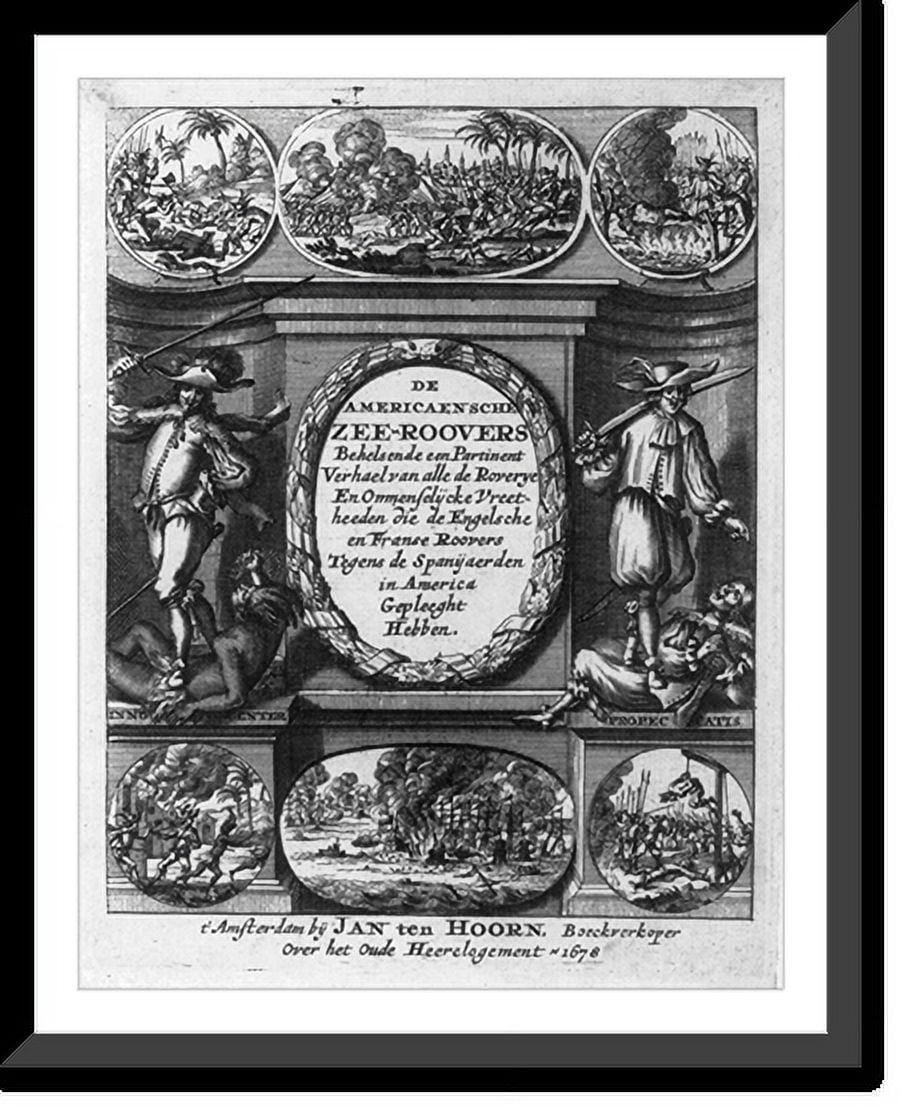 DE
AMERICAENSCHE
ZEE-ROOVERS
Behelsende een Partinent
Verhael van alle de Roverye
En Onmenselijcke Vreet-
heeden die de Engelsche
en Franse Roovers
Tegens de Spanijaerden
in America
Gepleeght
Hebben.
INNO ENTER
PROPEC CATIS
t'Amsterdam bij JAN ten HOORN, Boeckverkoper
Over het Oude Heerelogement 1678